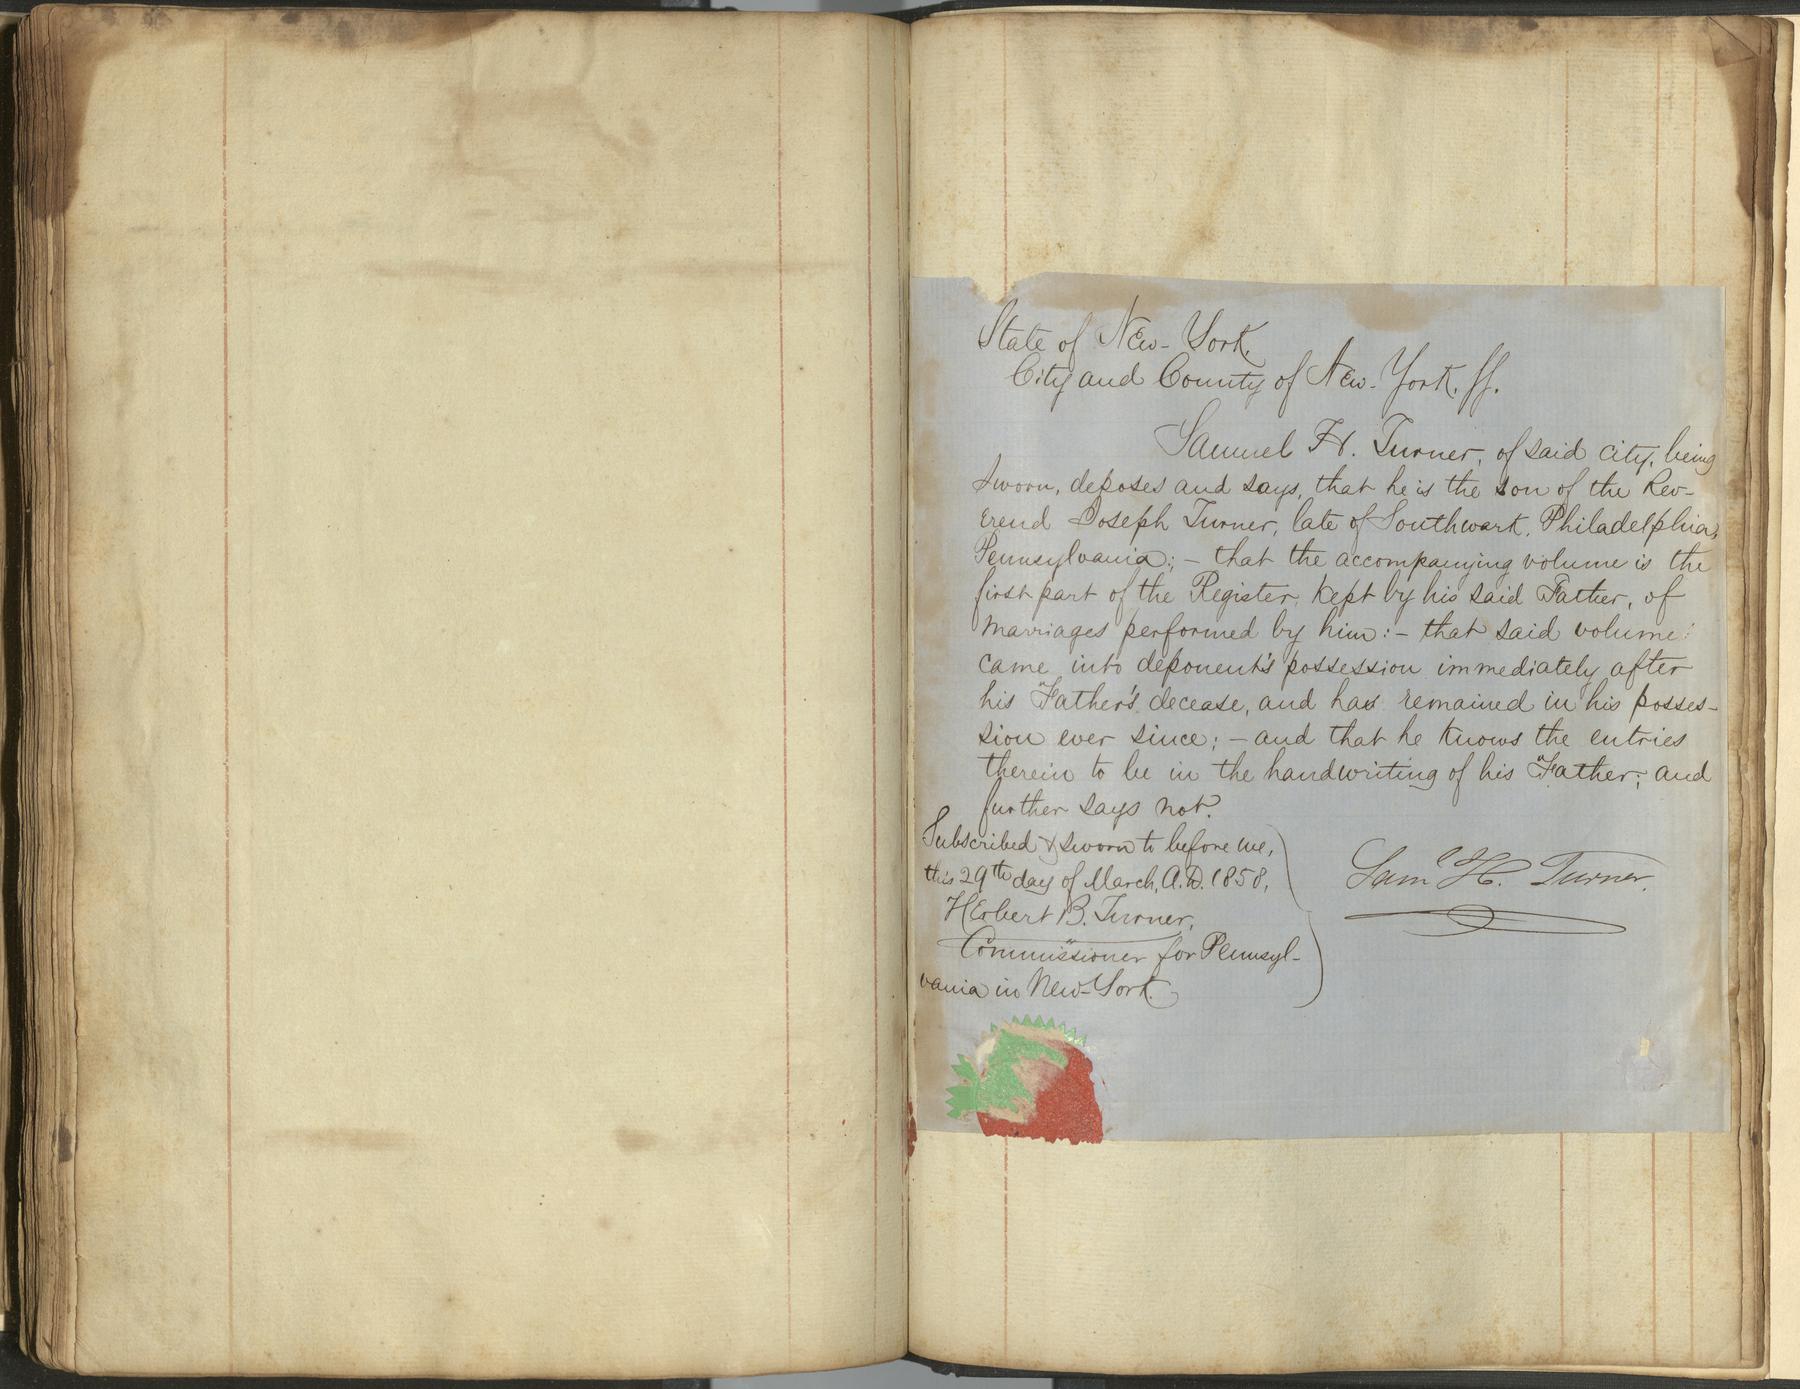 State of New-York.
City and County of New-York. ss.
Samuel H. Turner, of said city, being
sworn, deposes and says, that he is the son of the Rev-
erend Joseph Turner, late of Southwark, Philadelphia,
Pennsylvania; – that the accompanying volume is the
first part of the Register, kept by his said Father, of
marriages performed by him: – that said volume
came into deponent's possession immediately after
his Father's decease, and has remained in his posses-
sion ever since; – and that he knows the entries
therein to be in the handwriting of his Father; and
further says not.
Subscribed & sworn to before me,
this 29th day of March, A.D. 1858,
Herbert B. Turner,
Commissioner for Pennsyl-
vania in New-York.
Saml H. Turner.